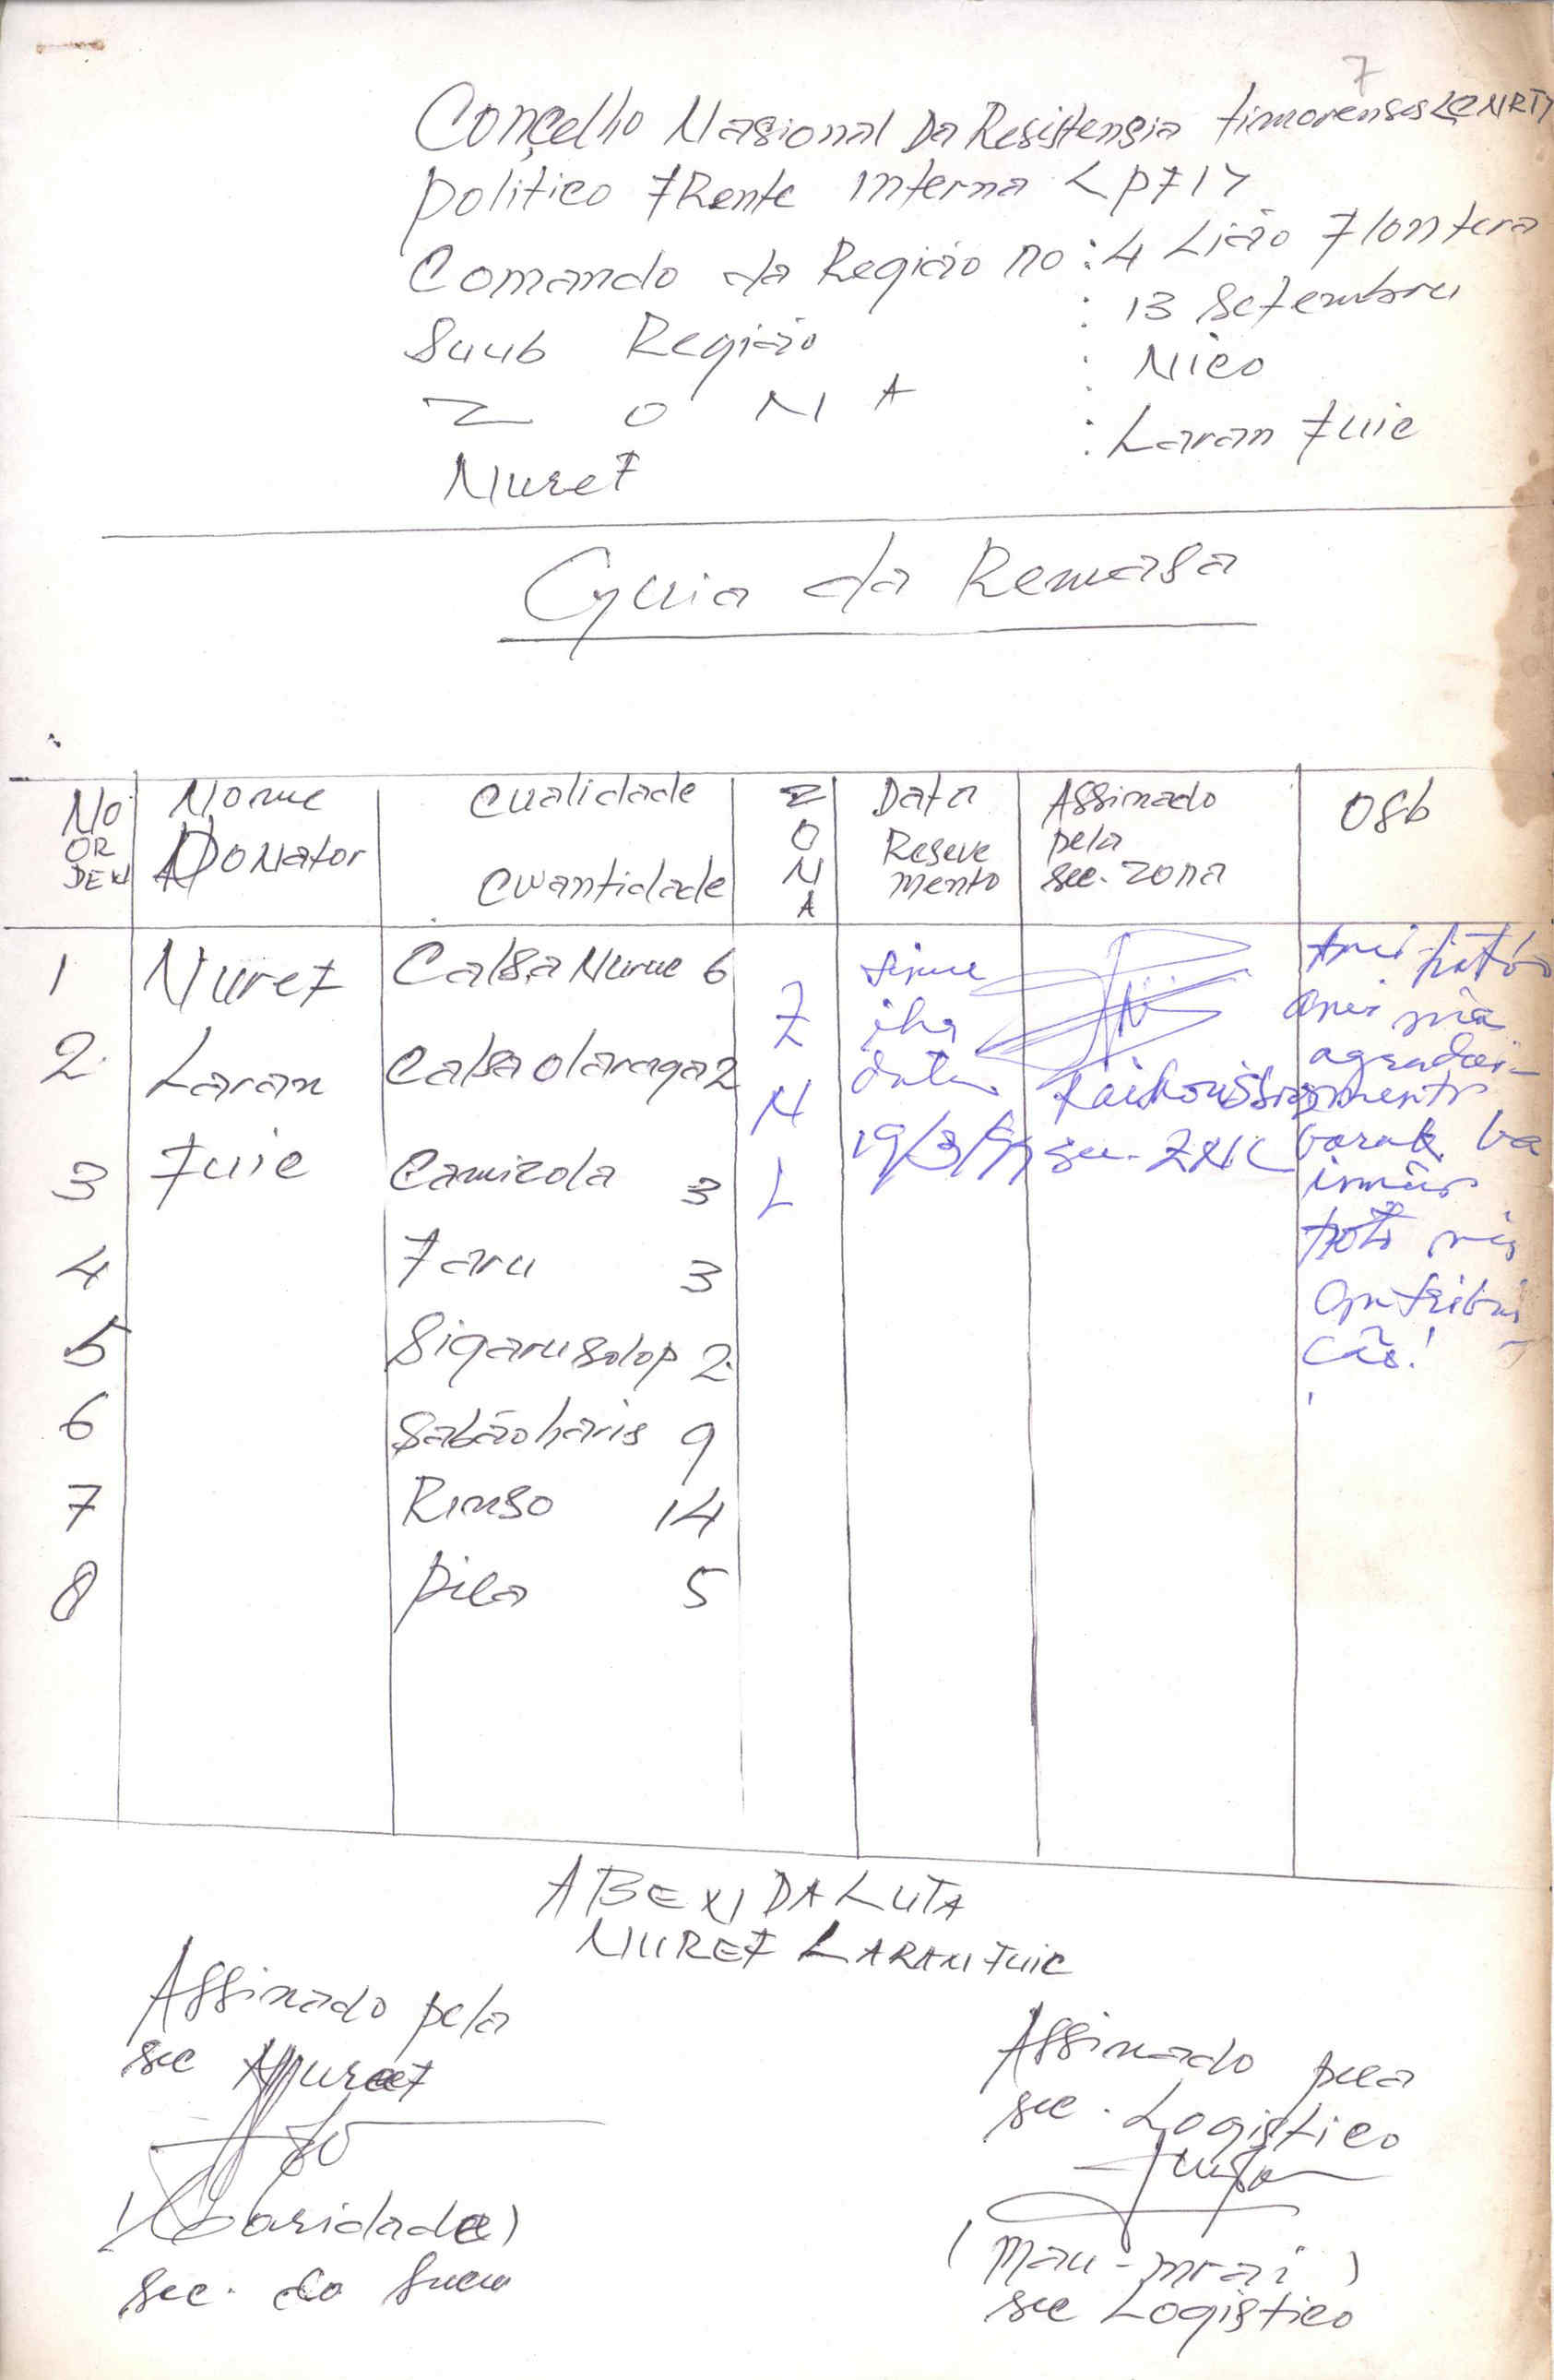 7
Conçelho Nasional Da Resistensia timorenses <CNRT>
politico FRente interna <PFI>
Comando da Região no : 4 Lião Flontera
Suub Região : 13 Setembru
Z O N A : Nico
Nuref : Laran Fuic
Cyuia da Remasa
No ORDEN
Nome Donator
Cualidade Cwantidade
ZONA
Data Reseve mento
Assinado pela sec. zona
OSb
1 Nuref Calsa Nume 6
2. Laran Calsa olaraga 2
3 Fuic Camizola 3
4 Faru 3
5 Sigaru solop 2.
6 Sabão haris 9
7 Rinso 14
8 pila 5
Z
N
L
Simu
iha
data
19/3/99
sec. ZNL
Ami hotó
ami nia
agradesi-
mento
barak ba
irmãos
hotó nia
Contribui
ção!
ABEXI DA LUTA
NUREF LARAN FUIC
Assinado pela
sec Nuref
(Claridade)
Sec. do Sucu
Assinado pela
sec. Logistico
(Mau-mrai)
sec Logistico